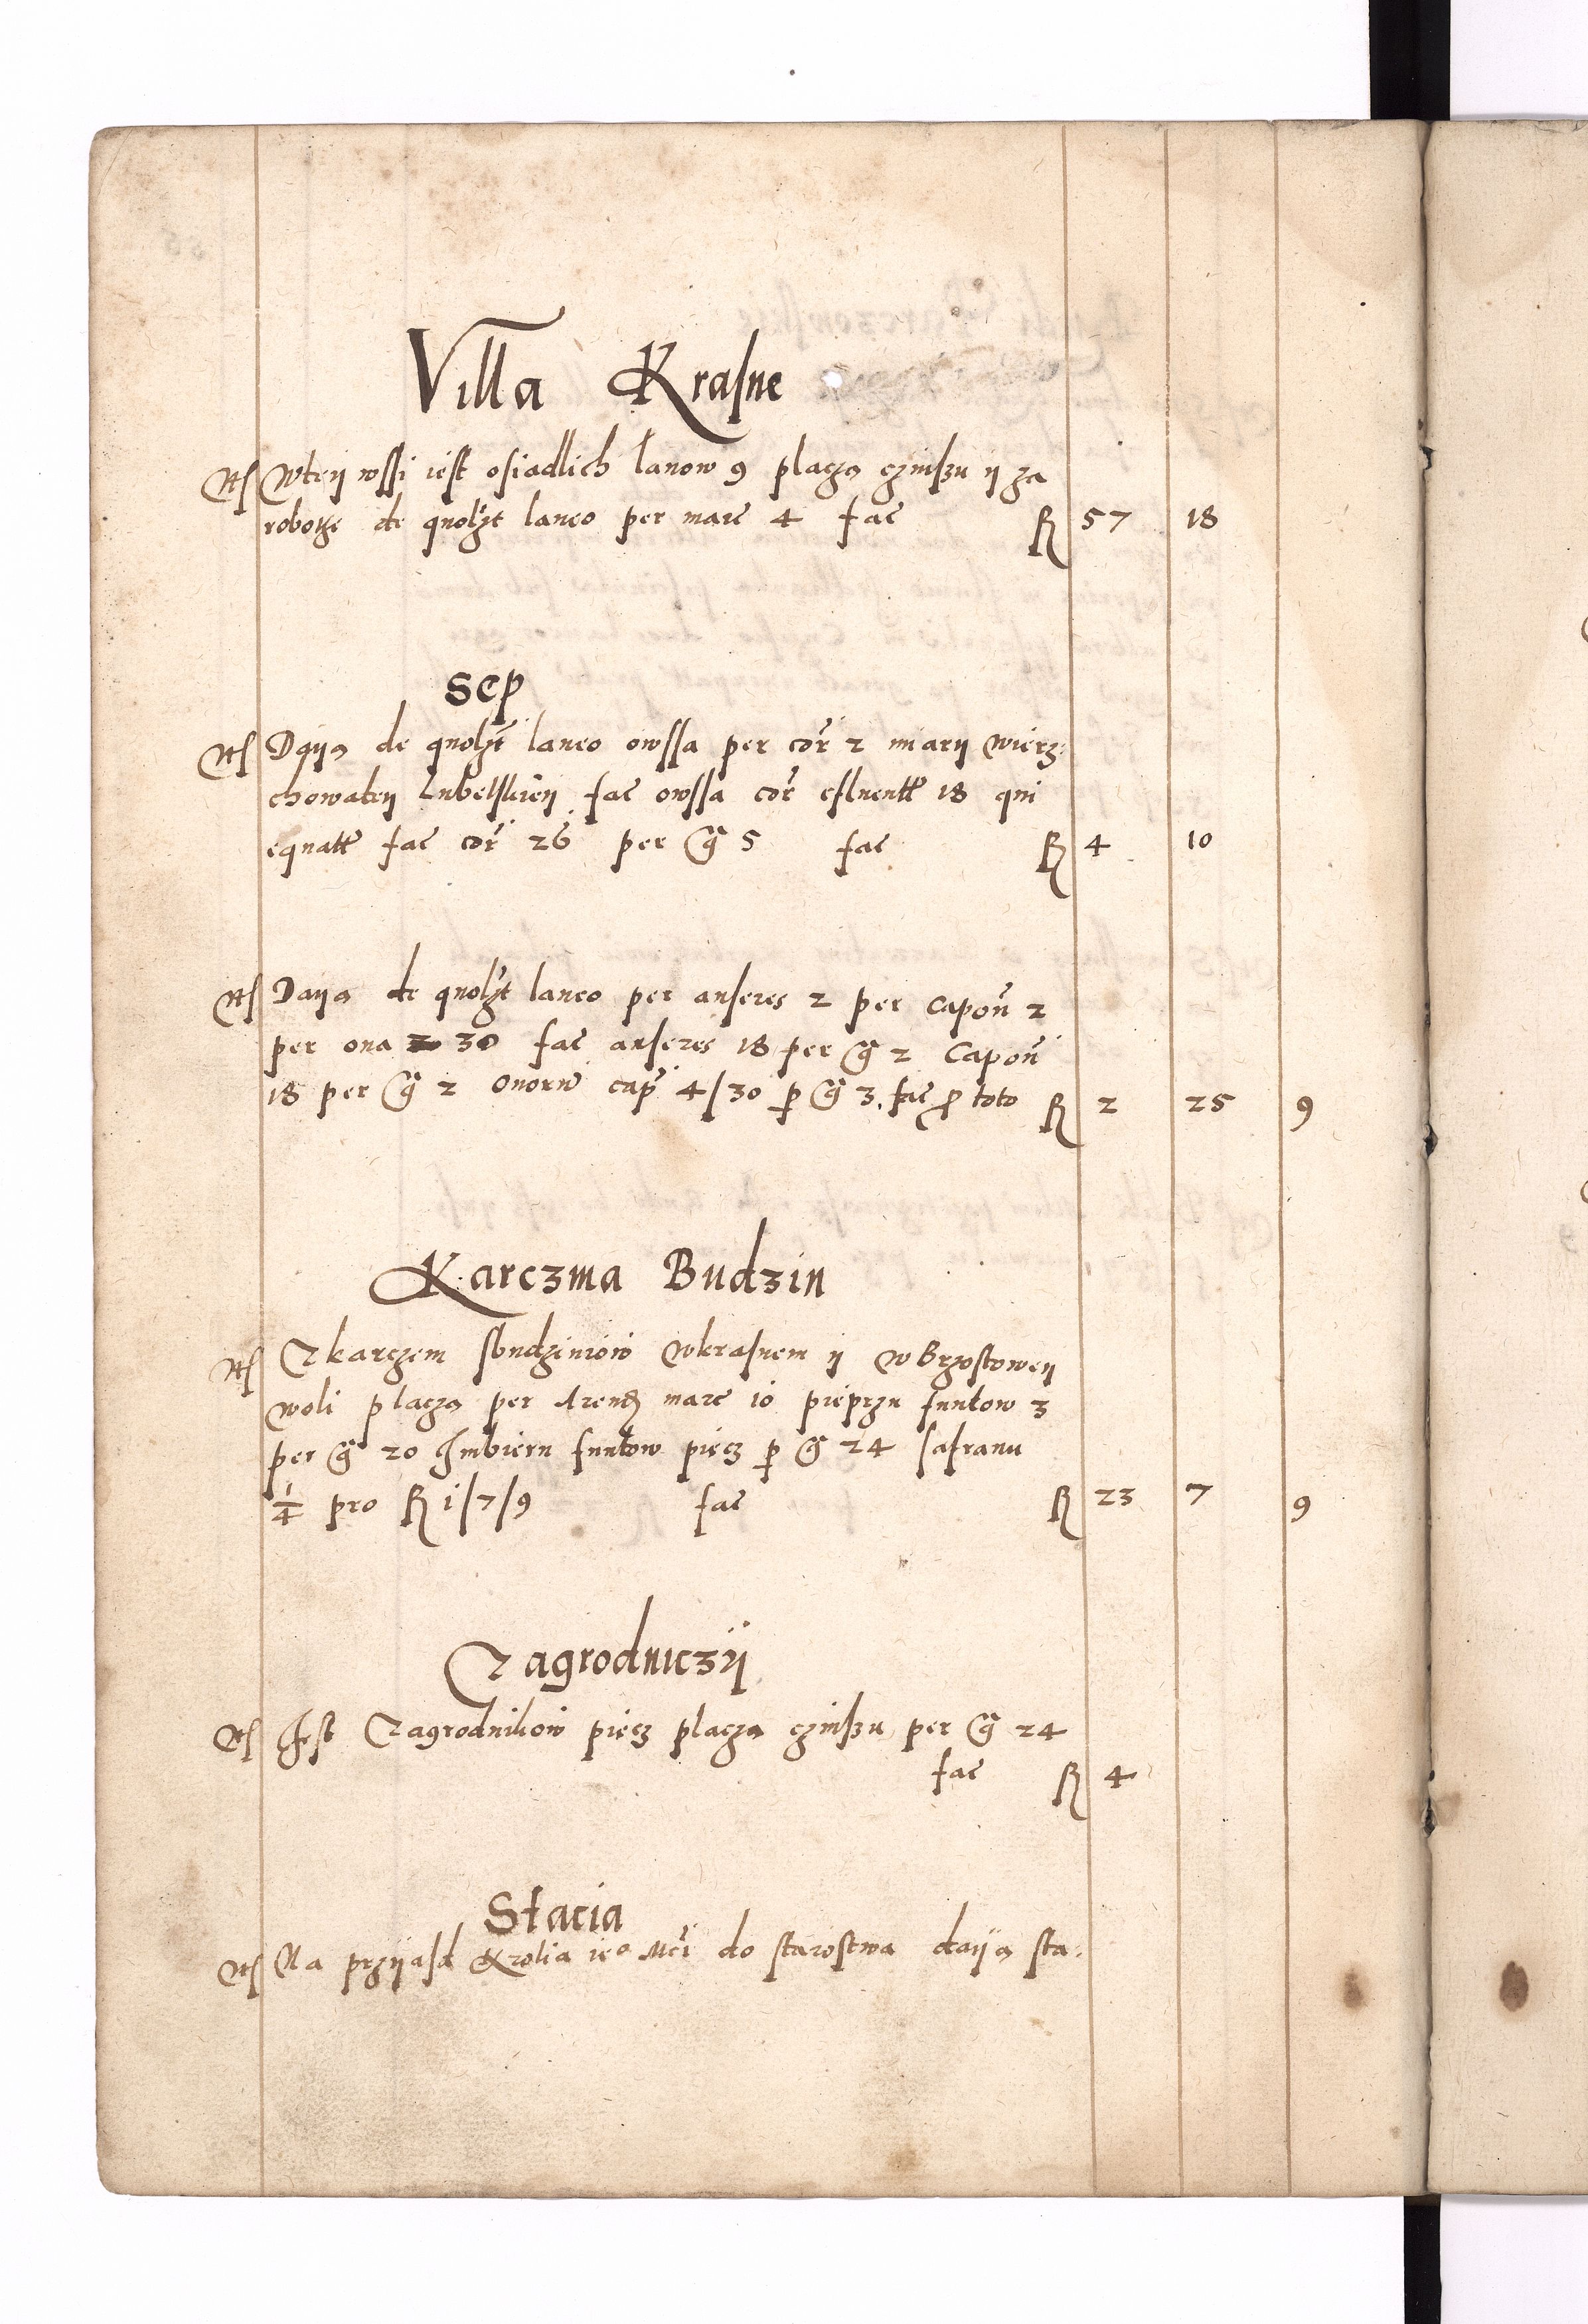 Villa Krasne
Wteÿ wssi iest osiadlich lanow 9 placzą czinszu ÿ za
robotę de quolĳt laneo per marc 4 fac fl 57 18
Sep
Daÿą de quolĳt laneo owssa per cor 2 miarÿ wierz:
chowateÿ Lubelskieÿ fac owssa cor 18 qui
fac cor 26 per g 5 fac fl 4 10
Daÿą de quolĳt laneo per anseres 2 per Capon 2
per oua 30 fac anseres 18 per g 2 Capon
18 per g 2 Ouorum cap 4/30 p g 3. fac p toto fl 2 25 9
Karczma Budzin
Z karczem sbudziniow wkrasnem ÿ w Brzostoweÿ
woli placzą per Arend marc 10 pieprzu funtow 3
per g 20 Imbieru funtow piecz p g 24 safranu
1/4 pro fl 1/7/9 fac fl 23 7 9
Zagrodniczÿ
Jest Zagrodnikow piecz placzą czinszu per g 24
fac fl 4
Stacia
Na przÿasd Krolia ie° Mci do starostwa daÿą sta: